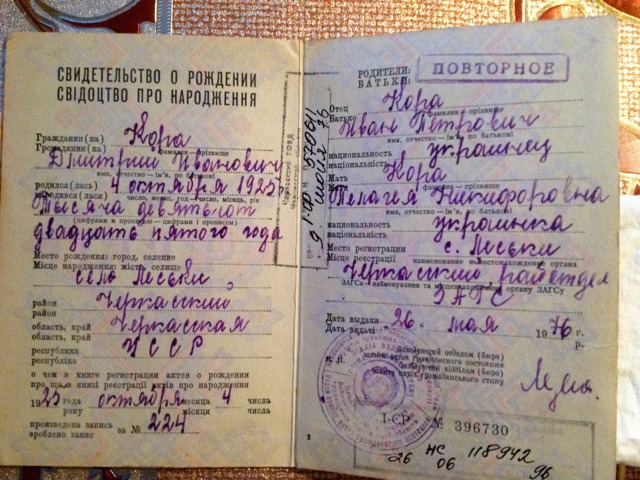 СВИДЕТЕЛЬСТВО О РОЖДЕНИИ
СВІДОЦТВО ПРО НАРОДЖЕННЯ
Гражданин (ка) Кора
Громадянин (ка)
фамилия – прізвище
Дмитрий Иванович
имя, отчество – ім'я, по батькові
родился (лась) 4 октября 1925
народився (лась)
число, месяц, год – число, місяць, рік
Тысяча девятьсот
цифрами и прописью – цифрами і прописом
двадцать пятого года
Место рождения: город, селение
Місце народження: місто, селище
село Леськи
район Черкасский
район
область, край Черкасская
область, край
республика УССР
республіка
о чем в книге регистрации актов о рождении
про що в книзі реєстрації актів про народження
1925 года октября месяца 4 числа
року місяця числа
произведена запись за № 224
зроблено запис
РОДИТЕЛИ:
БАТЬКИ:
ПОВТОРНОЕ
Отец Кора
Батько
фамилия – прізвище
Иван Петрович
имя, отчество – ім'я, по батькові
национальность украинец
національність
Мать Кора
Мати
фамилия – прізвище
Пелагея Никифоровна
имя, отчество – ім'я, по батькові
национальность украинка
національність
Место регистрации с. Леськи
Місце реєстрації
наименование и местонахождение органа
Черкасский райотдел
ЗАГСа – найменування та місцезнаходження органу ЗАГСу
ЗАГС
Дата выдачи 26 мая 1976 г.
Дата видачі р.
М. П.
Заведующий отделом (бюро)
записи актов гражданского состояния
Завідуючий відділом (бюро)
запису актів громадянського стану
I-СР № 396730
2
26 НС 118942
06 96